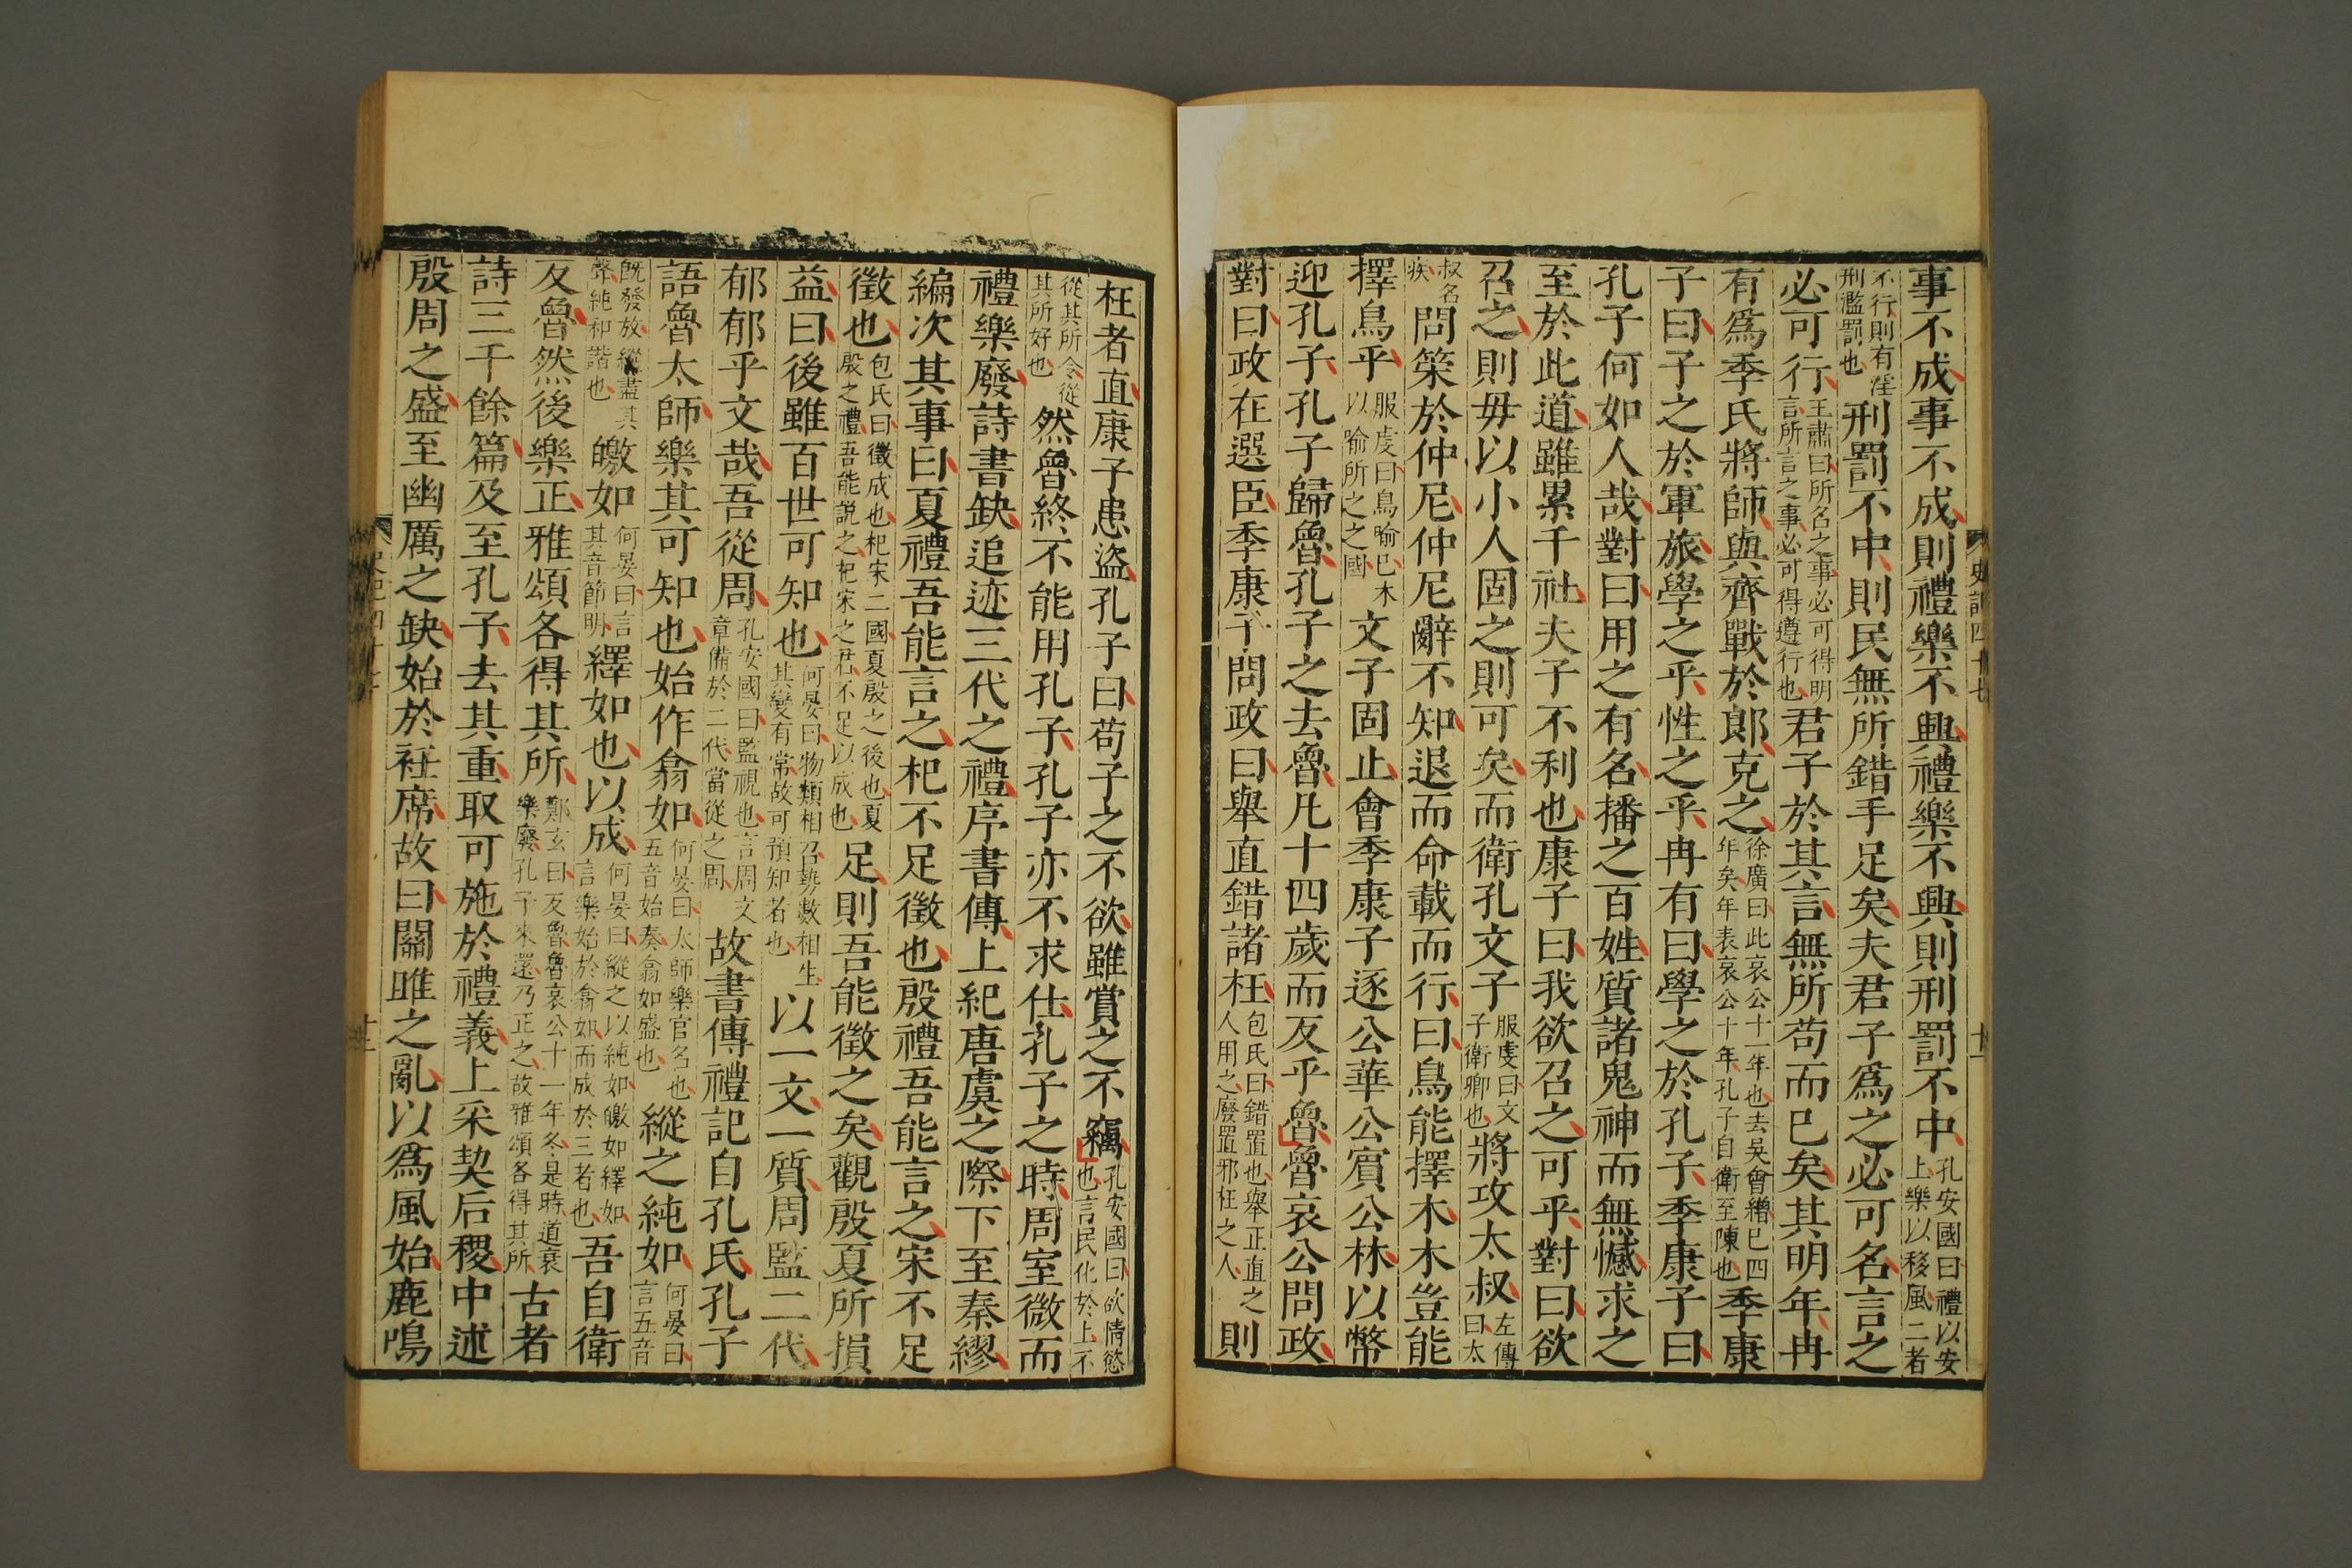 事不成事不成則禮樂不興禮樂不興則刑罰不中孔安國曰禮以安上樂以移風二者
不行則有淫刑濫罰也刑罰不中則民無所錯手足矣夫君子爲之必可名言之
必可行王肅曰所名之事必可得明言所言之事必可得遵行也君子於其言無所苟而已矣其明年冉
有爲季氏將師與齊戰於郎克之徐廣曰此哀公十一年也去吳會繒已四年矣年表哀公十年孔子自衛至陳也季康
子曰子之於軍旅學之乎性之乎冉有曰學之於孔子季康子曰
孔子何如人哉對曰用之有名播之百姓質諸鬼神而無憾求之
至於此道雖累千社夫子不利也康子曰我欲召之可乎對曰欲
召之則毋以小人固之則可矣而衛孔文子服虔曰文子衛卿也將攻太叔左傳曰太
叔名疾問策於仲尼仲尼辭不知退而命載而行曰鳥能擇木木豈能
擇鳥乎服虔曰鳥喻己木以喻所之之國文子固止會季康子逐公華公賓公林以幣
迎孔子孔子歸魯孔子之去魯凡十四歲而反乎魯魯哀公問政
對曰政在選臣季康子問政曰舉直錯諸枉包氏曰錯置也舉正直之人用之廢置邪枉之人則
史記四十七
十一
枉者直康子患盜孔子曰苟子之不欲雖賞之不竊孔安國曰欲情慾也言民化於上不
從其所令從其所好也然魯終不能用孔子孔子亦不求仕孔子之時周室微而
禮樂廢詩書缺追迹三代之禮序書傳上紀唐虞之際下至秦繆
編次其事曰夏禮吾能言之杞不足徵也殷禮吾能言之宋不足
徵也包氏曰徵成也杞宋二國夏殷之後也夏殷之禮吾能說之杞宋之君不足以成也足則吾能徵之矣觀殷夏所損
益曰後雖百世可知也何晏曰物類相召勢數相生其變有常故可預知者也以一文一質周監二代
郁郁乎文哉吾從周孔安國曰監視也言周文章備於二代當從之周故書傳禮記自孔氏孔子
語魯太師樂其可知也始作翕如何晏曰太師樂官名也五音始奏翕如盛也縱之純如何晏曰言五音
既發放縱盡其聲純和諧也皦如何晏曰言其音節明繹如也以成何晏曰縱之以純如皦如繹如言樂始於翕如而成於三者也吾自衛
反魯然後樂正雅頌各得其所鄭玄曰反魯魯哀公十一年冬是時道衰樂廢孔子來還乃正之故雅頌各得其所古者
詩三千餘篇及至孔子去其重取可施於禮義上采契后稷中述
殷周之盛至幽厲之缺始於衽席故曰關雎之亂以爲風始鹿鳴